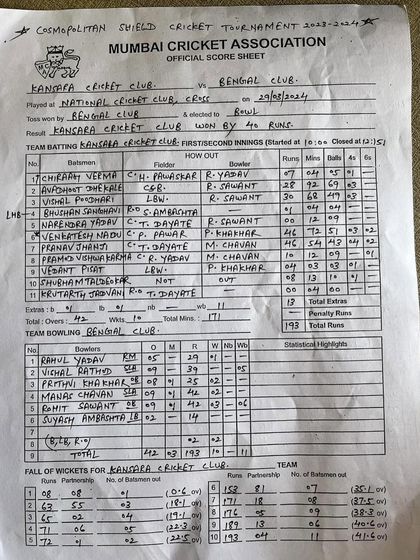 ★ COSMOPOLITAN SHIELD CRICKET TOURNAMENT 2023-2024 ★
MUMBAI CRICKET ASSOCIATION
OFFICIAL SCORE SHEET
KANSARA CRICKET CLUB. Vs BENGAL CLUB.
Played at NATIONAL CRICKET CLUB, CROSS on 29/03/2024
Toss won by BENGAL CLUB & elected to BOWL
Result KANSARA CRICKET CLUB WON BY 40 RUNS.
TEAM BATTING KANSARA CRICKET CLUB. FIRST/SECOND INNINGS (Started at 10:00 Closed at 12:51
No. Batsmen HOW OUT Runs Mins Balls 4s 6s
Fielder Bowler
1 CHIRAAG VERMA C. H. PAWASKAR R. YADAV 07 04 05 01
2 AVADHOOT DHEKALE C&B. R. SAWANT 28 92 69 03
3 VISHAL POODHARI LBW. R. SAWANT 30 68 49 03
LHB 4 BHUSHAN SANGHAVI R.O S. AMBASHTA 01 04 04
5 NARENDRA YADAV C. T. DAYATE R. SAWANT 00 12 09
6 VENKATESH NADU C. P. PAWAR P. KHAKHAR 46 72 51 03 02
7 PRANAV JHANJI C. T. DAYATE M. CHAVAN 46 54 43 04 02
8 PRAMOD VISHWAKARMA C. R. YADAV M. CHAVAN 10 12 09 01
9 VEDANT PISAT LBW. P. KHAKHAR 04 03 03 01
10 SHUBHAM TALDEOKAR NOT OUT 08 13 10 01
11 KRUTARTH JADVANI R.O T. DAYATE 00 04 00
Extras : b 01 lb 01 nb wb 11 13 Total Extras
Penalty Runs
Total : Overs : 42 Wkts. 10 Total Mins. : 171 193 Total Runs
TEAM BOWLING BENGAL CLUB.
No. Bowlers O M R W Nb Wb Statistical Highlights
1 RAHUL YADAV RM 05 29 01
2 VISHAL RATHOD SLA 09 39 05
3 PRITHVI KHAKHAR OB 08 01 25 02
4 MANAS CHAVAN SLA 09 01 42 02
5 ROHIT SAWANT OB 09 01 42 03 06
6 SUYASH AMBASHTA LB 02 14
7
8 (B, LB, R.O) 02 02
9 TOTAL 42 03 193 10 11
FALL OF WICKETS FOR KANSARA CRICKET CLUB. TEAM
Runs Partnership No. of Batsmen out Runs Partnership No. of Batsmen out
1 08 08 01 (0.6 ov) 6 153 81 07 (35.1 ov)
2 63 55 03 (18.1 ov) 7 171 18 08 (37.5 ov)
3 65 02 04 (19.1 ov) 8 176 05 09 (38.3 ov)
4 71 06 05 (22.3 ov) 9 189 13 06 (40.6 ov)
5 72 01 02 (22.5 ov) 10 193 04 11 (41.6 ov)